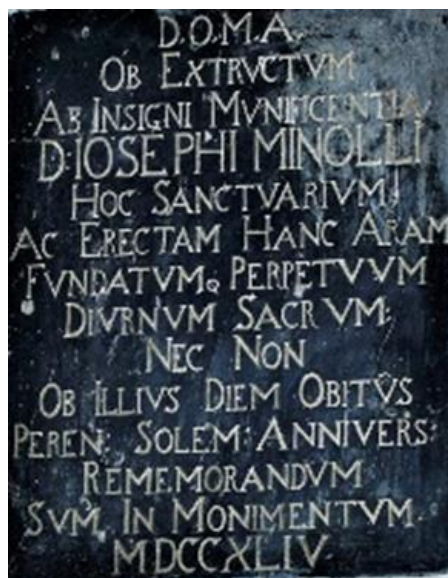 D.O.M.A.
OB EXTRVCTVM
AB INSIGNI MVNIFICENTIA
D: IOSEPHI MINOLLI
HOC SANCTVARIVM,
AC ERECTAM HANC ARAM
FVNDATVMQ PERPETVVM
DIVRNVM SACRVM:
NEC NON
OB ILLIVS DIEM OBITÛS
PEREN: SOLEM: ANNIVERS:
REMEMORANDVM
SVM IN MONIMENTVM
MDCCXLIV.